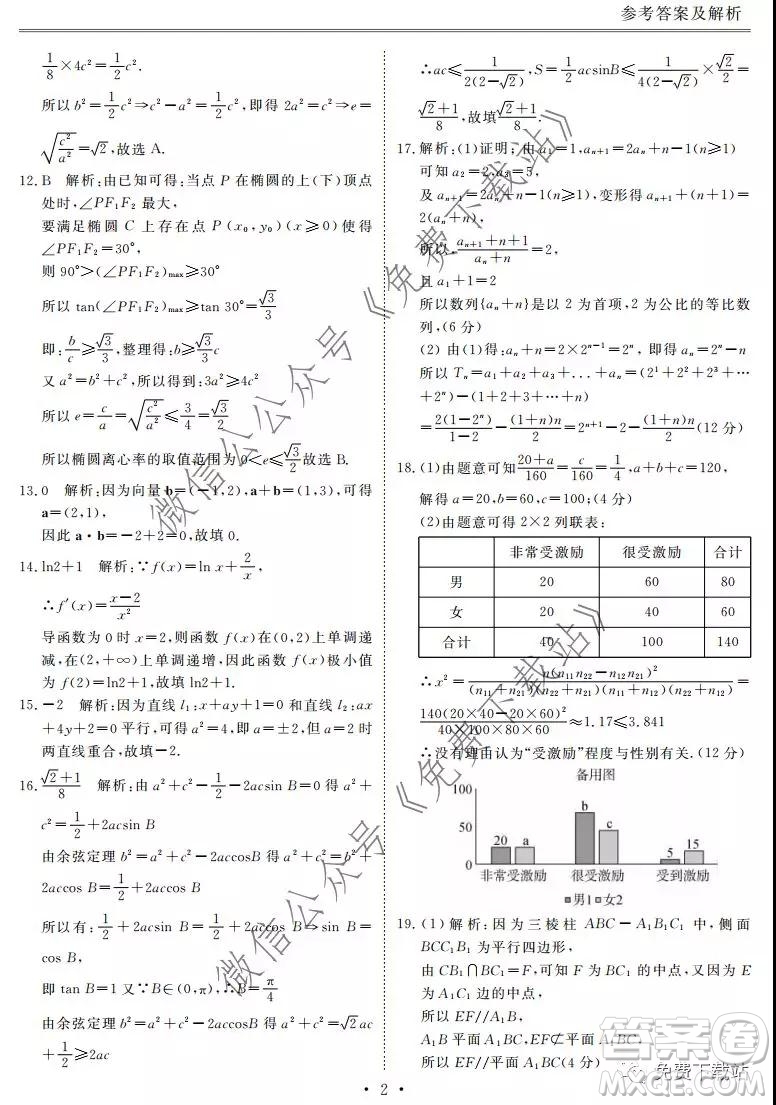 参考答案及解析
1/8×4c²=1/2c².
所以 b²=1/2c²⇒c²-a²=1/2c²,即得 2a²=c²⇒e=
√(c²/a²)=√2,故选 A.
12.B 解析:由已知可得:当点 P 在椭圆的上(下)顶点
处时,∠PF₁F₂ 最大,
要满足椭圆 C 上存在点 P(x₀,y₀)(x≥0)使得
∠PF₁F₂=30°,
则 90°>(∠PF₁F₂)max≥30°
所以 tan(∠PF₁F₂)max≥tan 30°=√3/3
即:b/c≥√3/3,整理得:b≥√3/3c
又 a²=b²+c²,所以得到:3a²≥4c²
所以 e=c/a=√(c²/a²)≤3/4=√3/2
所以椭圆离心率的取值范围为 0<e≤√3/2故选 B.
13.0 解析:因为向量 b=(-1,2),a+b=(1,3),可得
a=(2,1),
因此 a·b=-2+2=0,故填 0.
14.ln2+1 解析:∵f(x)=ln x+2/x,
∴f′(x)=(x-2)/x²
导函数为 0 时 x=2,则函数 f(x)在(0,2)上单调递
减,在(2,+∞)上单调递增,因此函数 f(x)极小值
为 f(2)=ln2+1,故填 ln2+1.
15.-2 解析:因为直线 l₁:x+ay+1=0 和直线 l₂:ax
+4y+2=0 平行,可得 a²=4,即 a=±2,但 a=2 时
两直线重合,故填-2.
16.(√2+1)/8 解析:由 a²+c²-1/2-2acsin B=0 得 a²+
c²=1/2+2acsin B
由余弦定理 b²=a²+c²-2accosB 得 a²+c²=b²+
2accos B=1/2+2accos B
所以有:1/2+2acsin B=1/2+2accos B⇒sin B=
cos B,
即 tan B=1 又∵B∈(0,π),∴B=π/4
由余弦定理 b²=a²+c²-2accosB 得 a²+c²=√2ac
+1/2≥2ac
∴ac≤1/(2(2-√2)),S=1/2acsinB≤1/(4(2-√2))×√2/2=
(√2+1)/8,故填(√2+1)/8.
17.解析:(1)证明:由 a₁=1,aₙ₊₁=2aₙ+n-1(n≥1)
可知 a₂=2,a₃=5,
及 aₙ₊₁=2aₙ+n-1(n≥1),变形得 aₙ₊₁+(n+1)=
2(aₙ+n),
所以,(aₙ₊₁+n+1)/(aₙ+n)=2,
且 a₁+1=2
所以数列{aₙ+n}是以 2 为首项,2 为公比的等比数
列,(6 分)
(2) 由(1)得:aₙ+n=2×2ⁿ⁻¹=2ⁿ, 即得 aₙ=2ⁿ-n
所以 Tₙ=a₁+a₂+a₃+...+aₙ=(2¹+2²+2³+…
+2ⁿ)-(1+2+3+…+n)
=2(1-2ⁿ)/(1-2)-(1+n)n/2=2ⁿ⁺¹-2-(1+n)n/2(12 分)
18.(1)由题意可知(20+a)/160=c/160=1/4,a+b+c=120,
解得 a=20,b=60,c=100;(4 分)
(2)由题意可得 2×2 列联表:
非常受激励 很受激励 合计
男 20 60 80
女 20 40 60
合计 40 100 140
∴x²=n(n₁₁n₂₂-n₁₂n₂₁)²/((n₁₁+n₂₁)(n₁₂+n₂₂)(n₁₁+n₁₂)(n₂₁+n₂₂))=
140(20×40-20×60)²/(40×100×80×60)≈1.17≤3.841
∴没有理由认为“受激励”程度与性别有关.(12 分)
备用图
100
50
0
20 a
b
c
5 15
非常受激励 很受激励 受到激励
■男1 ■女2
19.(1) 解析:因为三棱柱 ABC-A₁B₁C₁ 中,侧面
BCC₁B₁ 为平行四边形,
由 CB₁∩BC₁=F,可知 F 为 BC₁ 的中点,又因为 E
为 A₁C₁ 边的中点,
所以 EF//A₁B,
A₁B⊂平面 A₁BC,EF⊄平面 A₁BC,
所以 EF//平面 A₁BC(4 分)
· 2 ·
微信公众号《免费下载站》
微信公众号《免费下载站》
答案圈
免费下载站